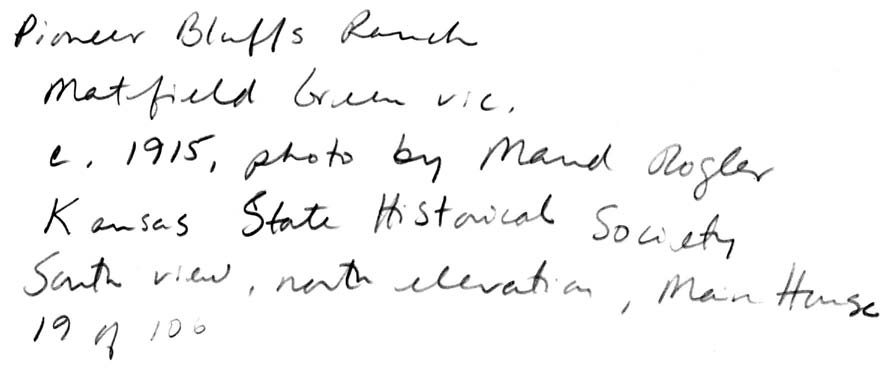 Pioneer Bluffs Ranch
Matfield Green vic.
c. 1915, photo by Maud Rogler
Kansas State Historical Society
South view, north elevation, Main House
19 of 106